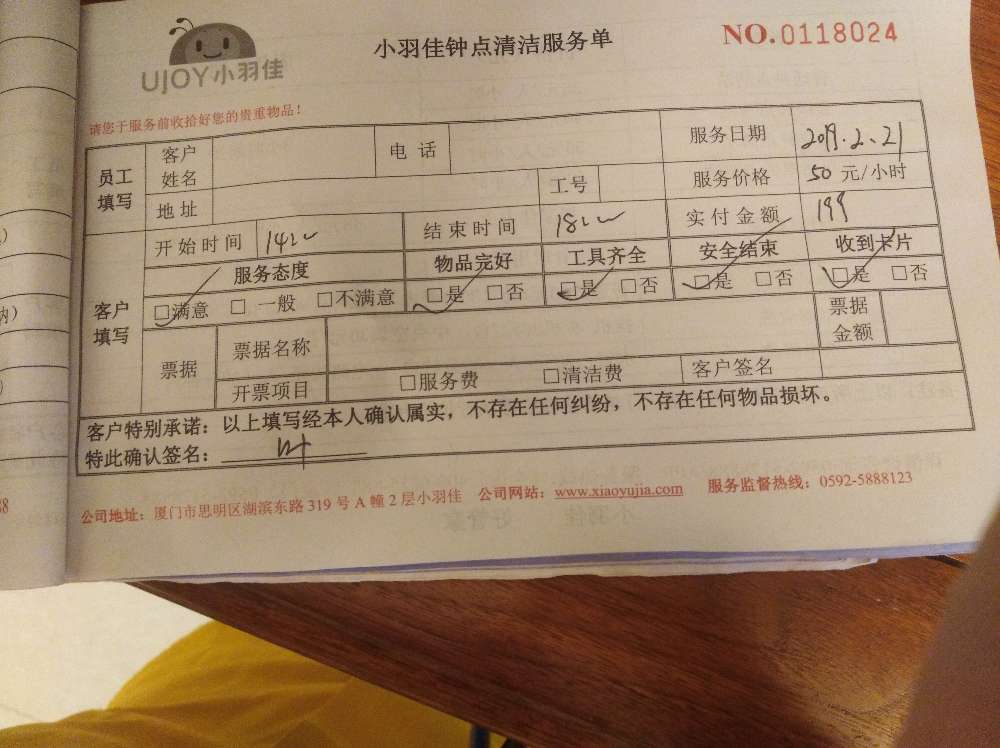 UJOY小羽佳
小羽佳钟点清洁服务单
NO.0118024
请您于服务前收拾好您的贵重物品！
员工填写 客户姓名 电 话 服务日期 2019.2.21
地址 工号 服务价格 50 元/小时
客户填写 开始时间 14 结束时间 18 实付金额 199
服务态度 物品完好 工具齐全 安全结束 收到卡片
□满意 □ 一般 □不满意 □是 □否 □是 □否 □是 □否 □是 □否
票据 票据名称 票据金额
开票项目 □服务费 □清洁费 客户签名
客户特别承诺：以上填写经本人确认属实，不存在任何纠纷，不存在任何物品损坏。
特此确认签名：
公司地址：厦门市思明区湖滨东路 319 号 A 幢 2 层小羽佳 公司网站：www.xiaoyujia.com 服务监督热线：0592-5888123